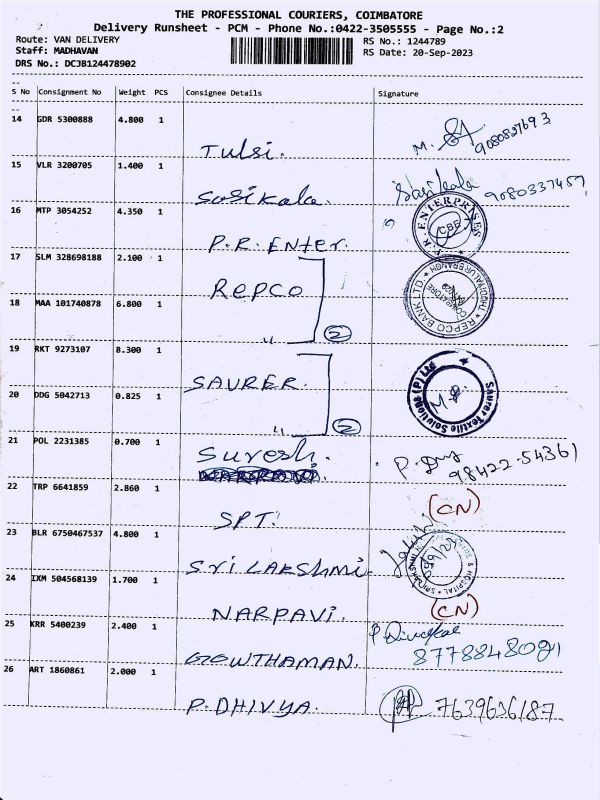 THE PROFESSIONAL COURIERS, COIMBATORE
Delivery Runsheet - PCM - Phone No.:0422-3505555 - Page No.:2
Route: VAN DELIVERY RS No.: 1244789
Staff: MADHAVAN RS Date: 20-Sep-2023
DRS No.: DCJB124478902
S No Consignment No Weight PCS Consignee Details Signature
14 GDR 5300888 4.800 1
Tulsi. M. 9080827693
15 VLR 3200705 1.400 1
Sasikala. Sasikala 9080337457
16 MTP 3054252 4.350 1
P.R. Enter. P.R. ENTERPRISES CBE
17 SLM 328698188 2.100 1
REPCO REPCO BANK LTD. COIMBATORE
18 MAA 101740878 6.800 1
" 2
19 RKT 9273107 8.300 1
SAURER. Saurer Textile Solutions (P) Ltd
20 DDG 5042713 0.825 1
" 2
21 POL 2231385 0.700 1
Suresh. P. 98422-54361
22 TRP 6641859 2.860 1
SPT. (CN)
23 BLR 6750467537 4.800 1
Sri LAKShmi. HOSPITAL
24 IXM 504568139 1.700 1
NARPAVI. (CN)
25 KRR 5400239 2.400 1
GOWTHAMAN. 8778848021
26 ART 1860861 2.000 1
P. DHIVYA. 7639636187